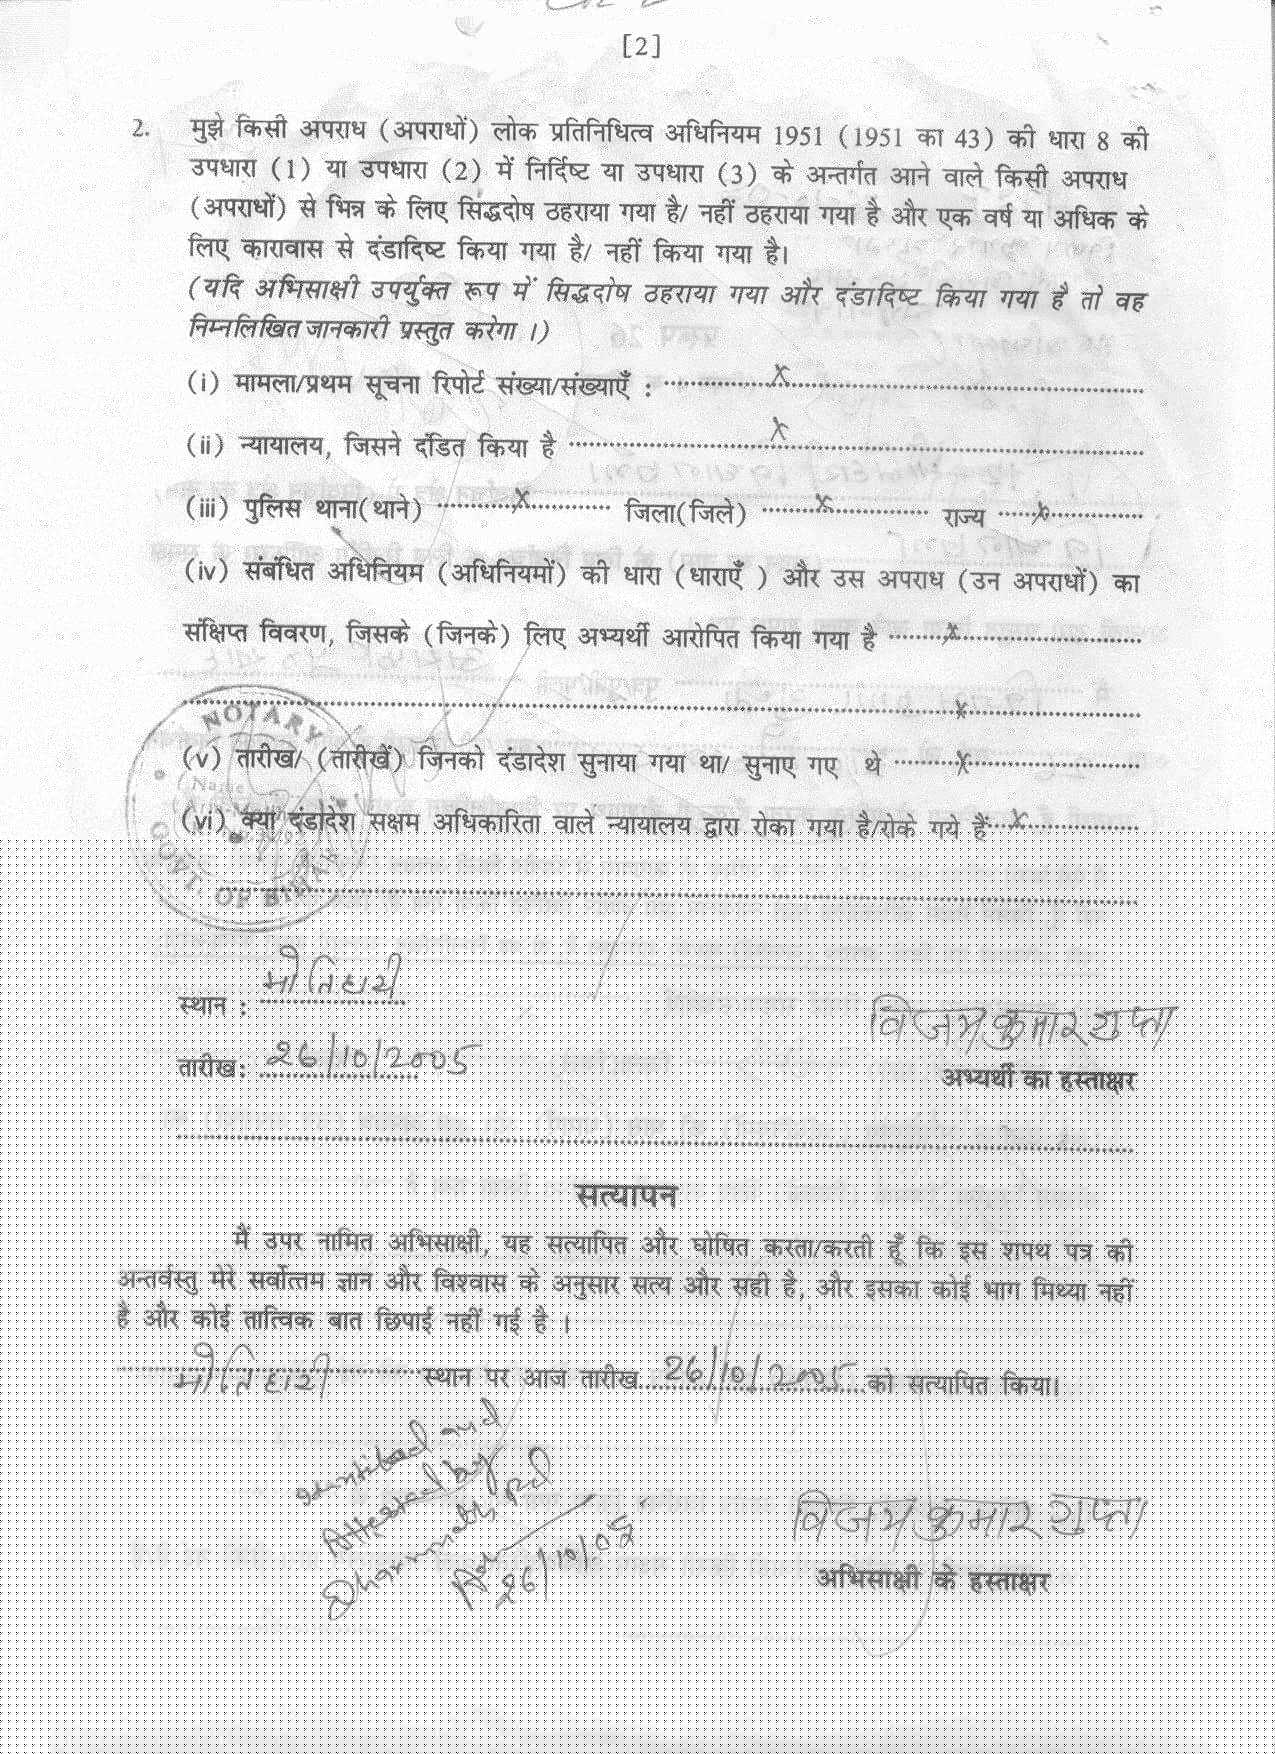 [2]
2. मुझे किसी अपराध (अपराधों) लोक प्रतिनिधित्व अधिनियम 1951 (1951 का 43) की धारा 8 की
उपधारा (1) या उपधारा (2) में निर्दिष्ट या उपधारा (3) के अन्तर्गत आने वाले किसी अपराध
(अपराधों) से भिन्न के लिए सिद्धदोष ठहराया गया है/ नहीं ठहराया गया है और एक वर्ष या अधिक के
लिए कारावास से दंडादिष्ट किया गया है/ नहीं किया गया है।
(यदि अभिसाक्षी उपर्युक्त रूप में सिद्धदोष ठहराया गया और दंडादिष्ट किया गया है तो वह
निम्नलिखित जानकारी प्रस्तुत करेगा ।)
(i) मामला/प्रथम सूचना रिपोर्ट संख्या/संख्याएँ : x
(ii) न्यायालय, जिसने दंडित किया है x
(iii) पुलिस थाना(थाने) x जिला(जिले) x राज्य x
(iv) संबंधित अधिनियम (अधिनियमों) की धारा (धाराएँ ) और उस अपराध (उन अपराधों) का
संक्षिप्त विवरण, जिसके (जिनके) लिए अभ्यर्थी आरोपित किया गया है x
x
NOTARY
(v) तारीख/ (तारीखें) जिनको दंडादेश सुनाया गया था/ सुनाए गए थे x
(vi) क्या दंडादेश सक्षम अधिकारिता वाले न्यायालय द्वारा रोका गया है/रोके गये हैं x
GOVT. OF BIHAR
स्थान : मोतिहारी
विजय कुमार गुप्ता
तारीख: 26/10/2005
अभ्यर्थी का हस्ताक्षर
सत्यापन
मैं उपर नामित अभिसाक्षी, यह सत्यापित और घोषित करता/करती हूँ कि इस शपथ पत्र की
अन्तर्वस्तु मेरे सर्वोत्तम ज्ञान और विश्वास के अनुसार सत्य और सही है, और इसका कोई भाग मिथ्या नहीं
है और कोई तात्विक बात छिपाई नहीं गई है ।
मोतिहारी स्थान पर आज तारीख 26/10/2005 को सत्यापित किया।
Identified and
Attested by
Dharmnath Pd
26/10/05
विजय कुमार गुप्ता
अभिसाक्षी के हस्ताक्षर